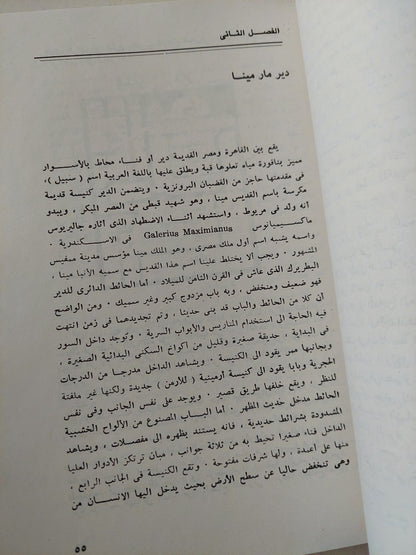 الفصل الثانى
دير مار مينا
يقع بين القاهرة ومصر القديمة دير أو فناء محاط بالأسوار
مميز بنافورة مياه تعلوها قبة ويطلق عليها باللغة العربية اسم ( سبيل ) ،
فى مقدمتها حاجز من القضبان البرونزية ٠ ويتضمن الدير كنيسة قديمة
مكرسة باسم القديس مينا ، وهو شهيد قبطى من العصر المبكر ، ويبدو
أنه ولد فى مريوط ، واستشهد أثناء الاضطهاد الذى أثاره جاليريوس
ماكسيميانوس Galerius Maximianus فى الاسكندرية ٠
واسمه يشبه اسم أول ملك مصرى ، وهو الملك مينا مؤسس مدينة ممفيس
المشهور ٠ ويجب ألا يختلط علينا اسم هذا القديس مع سميه الأنبا مينا ،
البطريرك الذى عاش فى القرن الثامن للميلاد ٠ أما الحائط الدائرى للدير
فهو ضعيف ومنخفض ، وبه باب مزدوج كبير وغير سميك ٠ ومن الواضح
أن كلا من الحائط والباب قد بنى حديثا ، وتم تجديدهما فى زمن انتهت
فيه الحاجة الى استخدام المتاريس والأبواب السرية ٠ وتوجد داخل السور
فى البداية ، حديقة صغيرة وقليل من أكواخ السكنى البدائية الصغيرة ،
وبجانبها ممر يقود الى الكنيسة ٠ ويشاهد الداخل مدرجا من الدرجات
الحجرية وبابا يقود الى كنيسة أرمينية ( للأرمن ) جديدة ولكنها غير ملفتة
للنظر ، ويقع خلفها طريق قصير ٠ ويوجد على نفس الجانب وفى نفس
الحائط مدخل حديث المظهر ٠ أما الباب المصنوع من الألواح الخشبية
المشدودة بشرائط حديدية ، فانه يستند بظهره الى مفصلات ، ويشاهد
الداخل فناء صغيرا تحيط به من ثلاثة جوانب ، مبان ترتكز الأدوار العليا
منها على أعمدة ، ولها شرفات مفتوحة ٠ وتقع الكنيسة فى الجانب الرابع ٠
وهى تنخفض حاليا عن سطح الأرض بحيث يدخل اليها الانسان من
٥٥